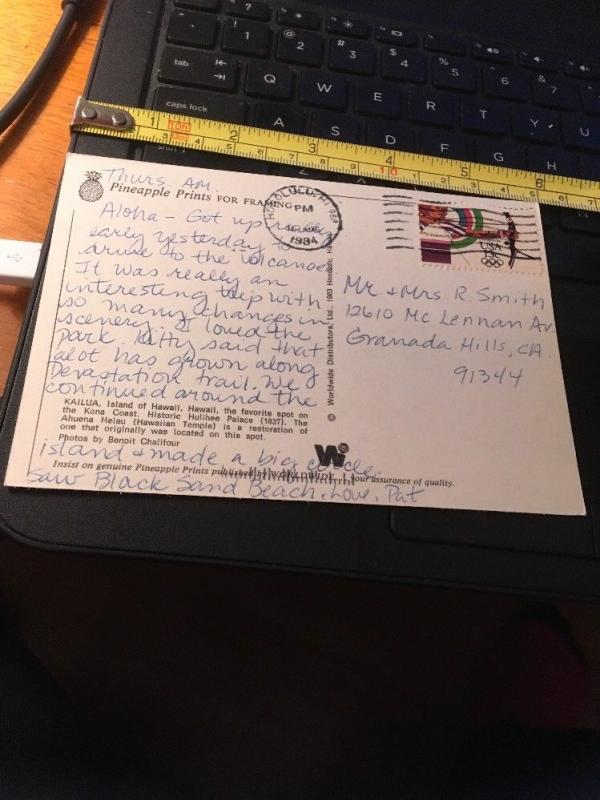 tab
Q W E R T Y U
caps lock
A S D F G H
1 2 3 4 5 6
Thurs. AM.
Pineapple Prints FOR FRAMING
HONOLULU, HI
PM
1984
USA
Aloha - Got up
early yesterday to
drive to the volcanoes.
It was really an
interesting trip with
so many changes in
scenery. I loved the
park. Kitty said that
alot has grown along
Devastation trail. We
continued around the
KAILUA, Island of Hawaii, Hawaii, the favorite spot on
the Kona Coast. Historic Hulihee Palace (1837). The
Ahuena Heiau (Hawaiian Temple) is a restoration of
one that originally was located on this spot.
Photos by Benoit Chalifour
island & made a big circle.
Insist on genuine Pineapple Prints published by WORLDWIDE, your assurance of quality.
Saw Black Sand Beach. Love, Pat
© Worldwide Distributors, Ltd., 1983
W
Mr. & Mrs. R. Smith
12610 Mc Lennan Av
Granada Hills, CA.
91344